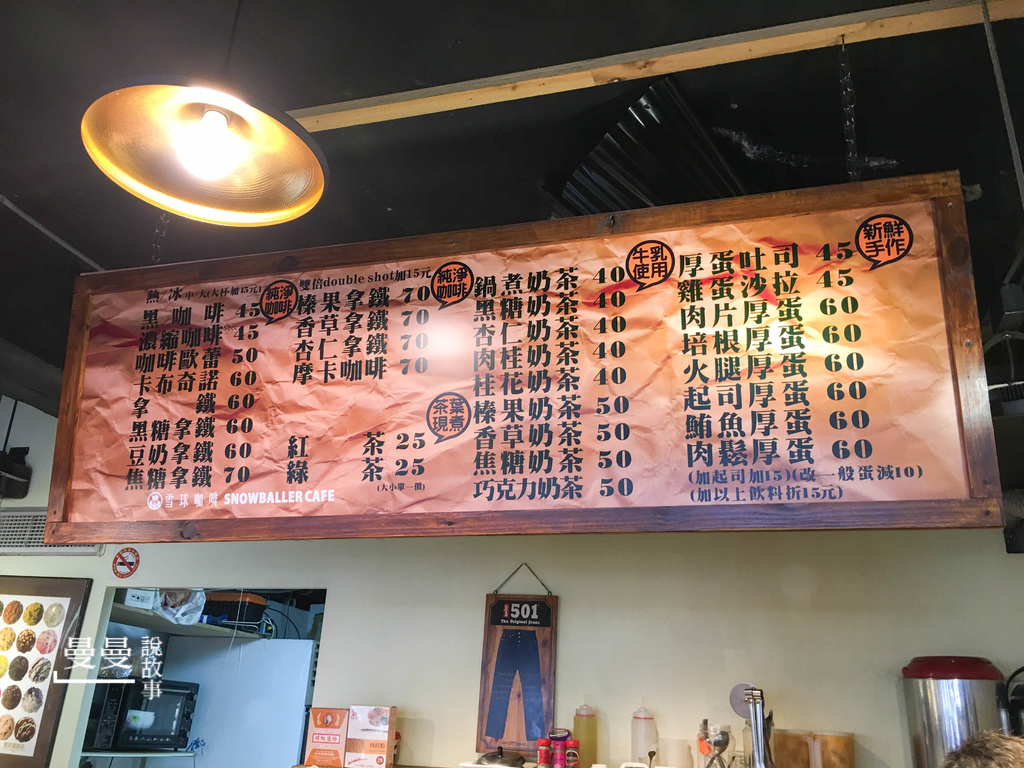 熱 冰 中 大(大杯加15元)
純淨
咖啡
黑咖啡 45
濃縮咖啡 45
咖啡歐蕾 50
卡布奇諾 60
拿鐵 60
黑糖拿鐵 60
豆奶拿鐵 60
焦糖拿鐵 70
雪球咖啡 SNOWBALLER CAFE
雙倍double shot加15元
純淨
咖啡
榛果拿鐵 70
香草拿鐵 70
杏仁拿鐵 70
摩卡咖啡 70
茶葉
現煮
紅茶 25
綠茶 25
(大小單一價)
牛乳
使用
鍋煮奶茶 40
黑糖奶茶 40
杏仁奶茶 40
肉桂奶茶 40
桂花奶茶 40
榛果奶茶 50
香草奶茶 50
焦糖奶茶 50
巧克力奶茶 50
新鮮
手作
厚蛋吐司 45
雞蛋沙拉 45
肉片厚蛋 60
培根厚蛋 60
火腿厚蛋 60
起司厚蛋 60
鮪魚厚蛋 60
肉鬆厚蛋 60
(加起司加15)(改一般蛋減10)
(加以上飲料折15元)
501
The Original Jeans
曼曼
說故事